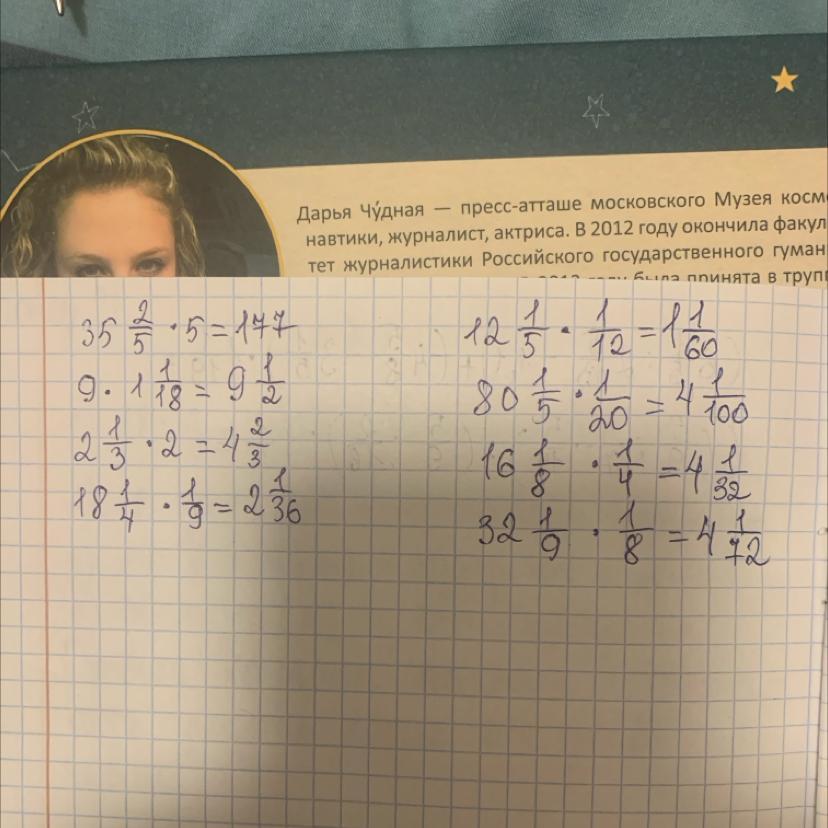 Дарья Чу́дная — пресс-атташе московского Музея косм
навтики, журналист, актриса. В 2012 году окончила факул
тет журналистики Российского государственного гуман
была принята в труп
35 2/5 · 5 = 177
9 · 1 1/18 = 9 1/2
2 1/3 · 2 = 4 2/3
18 1/4 · 1/9 = 2 1/36
12 1/5 · 1/12 = 1 1/60
80 1/5 · 1/20 = 4 1/100
16 1/8 · 1/4 = 4 1/32
32 1/9 · 1/8 = 4 1/72